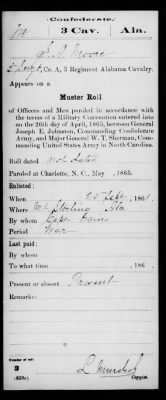 (Confederate.)
M 3 Cav. Ala.
Moore
Sergt, Co. A, 3 Regiment Alabama Cavalry.
Appears on a
Muster Roll
of Officers and Men paroled in accordance with
the terms of a Military Convention entered into
on the 26th day of April, 1865, between General
Joseph E. Johnston, Commanding Confederate
Army, and Major General W. T. Sherman, Com-
manding United States Army in North Carolina.
Roll dated Not dated
Paroled at Charlotte, N. C., May , 1865.
Enlisted:
When 25 Sept, 1861.
Where Mt Sterling Ala
By whom Capt
Period War
Last paid:
By whom
To what time , 186 .
Present or absent Present
Remarks:
Number of roll:
3
(639c) Copyist.